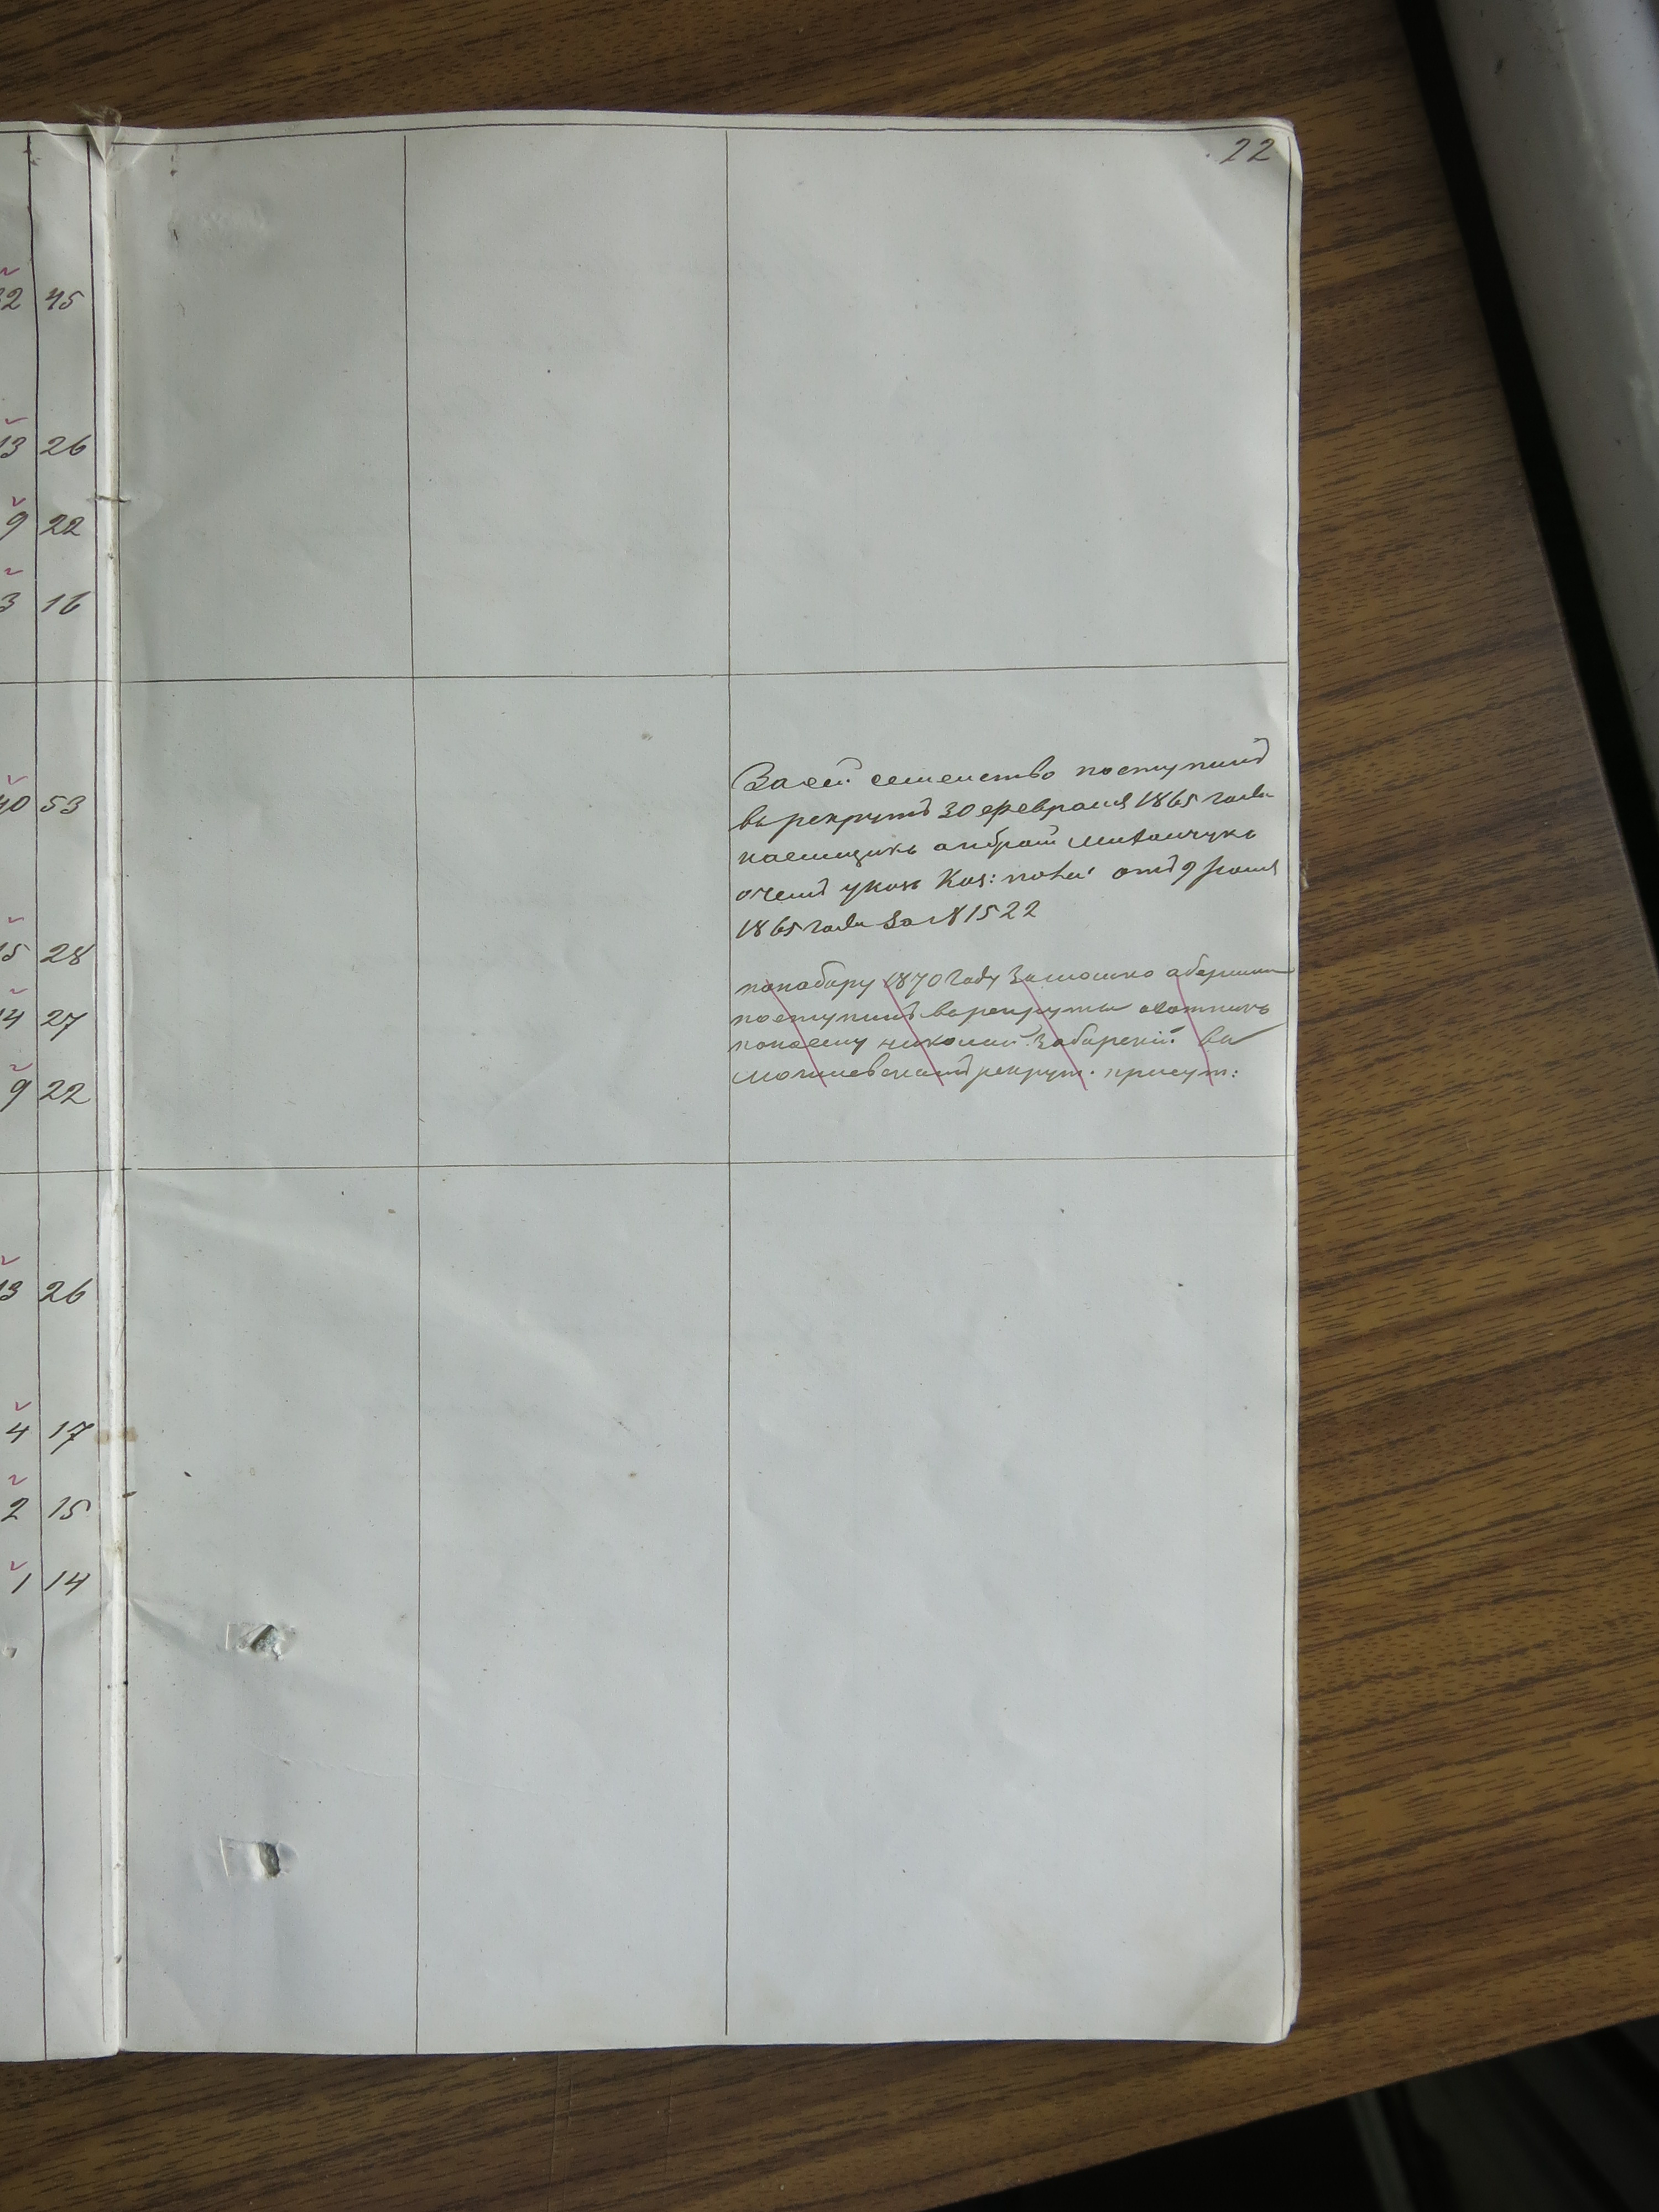 22
32 45
13 26
9 22
3 16
40 53
15 28
14 27
9 22
13 26
4 17
2 15
1 14
За сей семейство поступилъ
въ рекрутъ 30 февраля 1865 года
наемщикъ
о чемъ указъ Каз: пола: отъ 9 Іюня
1865 года За № 1522
по набору 1870 году За
поступилъ в рекруты охотникъ
по найму николай Забарскій в
могилевскомъ рекрут. присут: